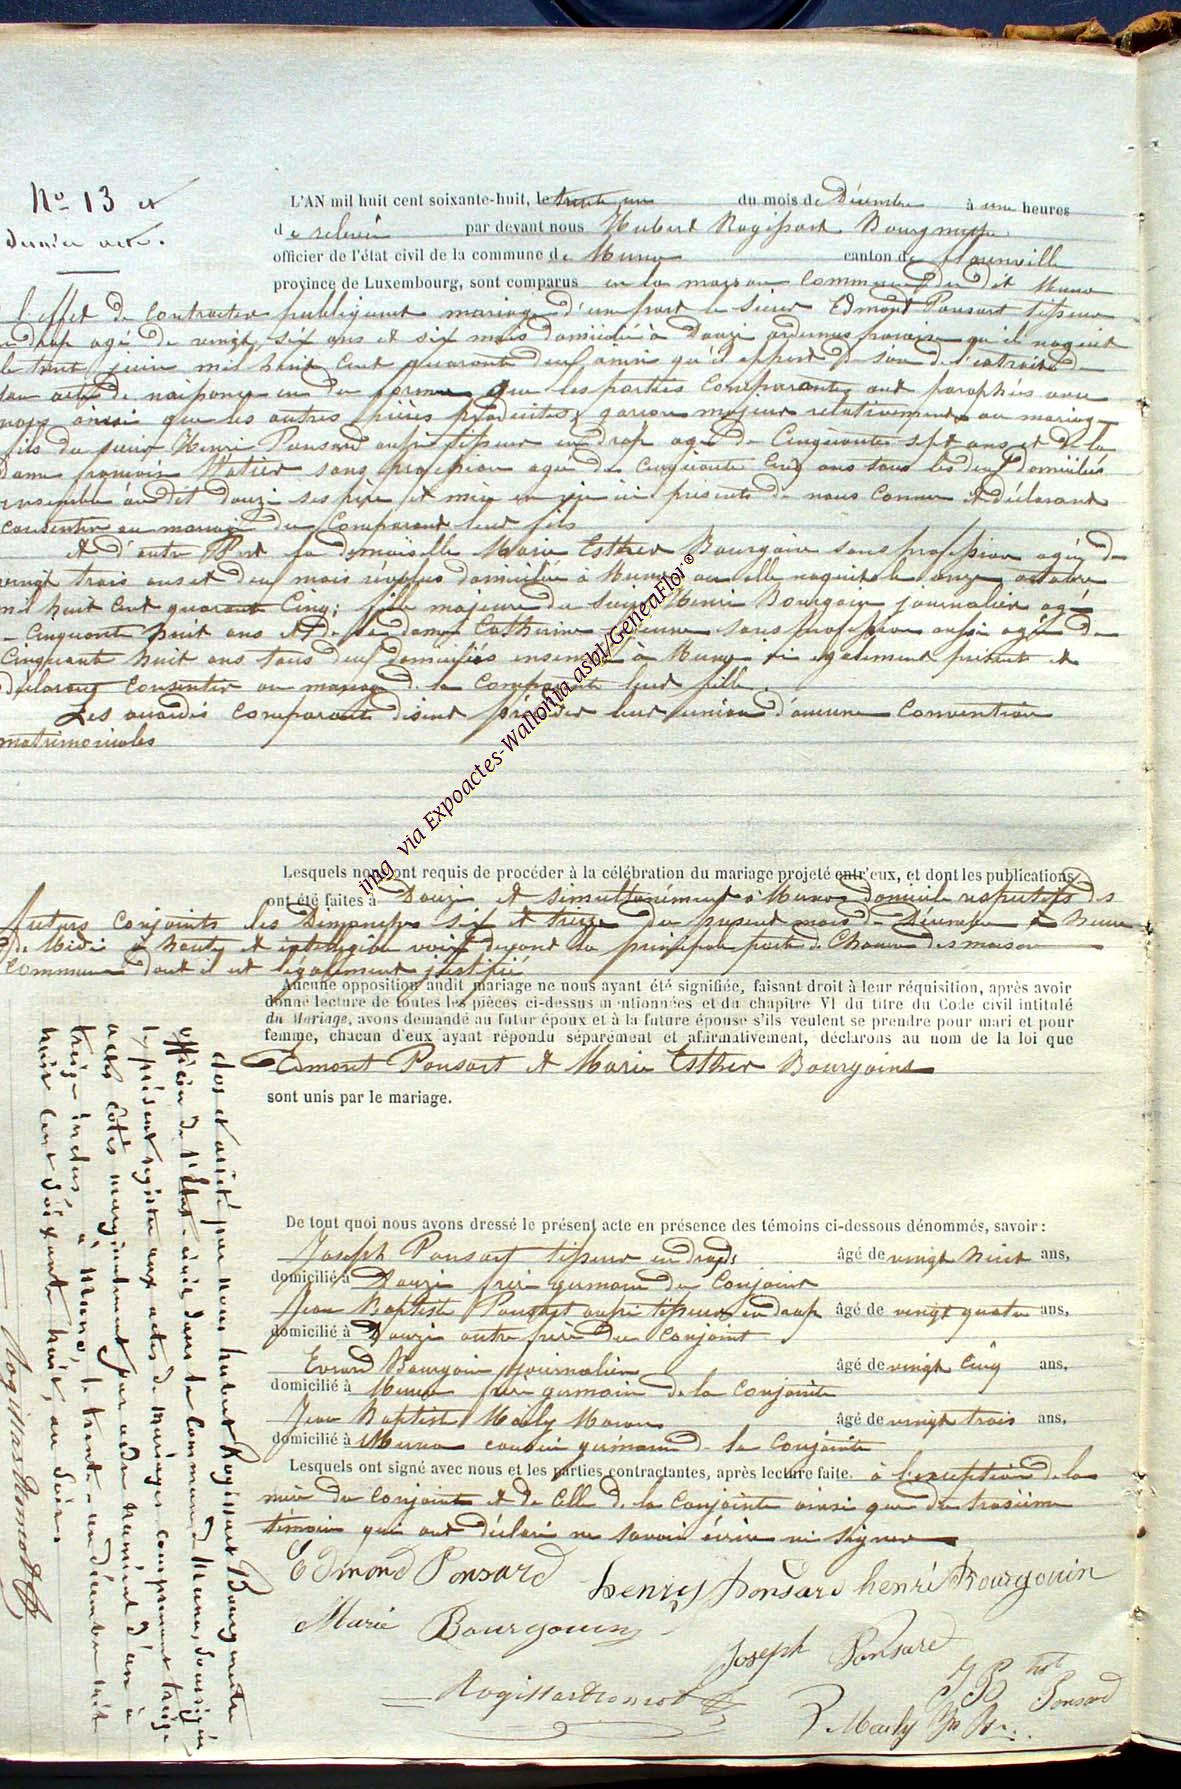 No 13 et
dernier acte.
L'AN mil huit cent soixante-huit, le trente un du mois de Décembre à une heures
de relevée par devant nous Hubert Rogissart Bourgmestre
officier de l'état civil de la commune de Muno canton de florenville
province de Luxembourg, sont comparus en la maison Commune du dit Muno
l'effet de contracter publiquement mariage d'un part le sieur Edmont Ponsart tisseur
en drap agé de vingt six ans et six mois domicilié à Douzi ardennes où il naquit
le trent juin mil huit Cent quarante deux ainsi qu'il appert de l'extrait de
son acte de naissance en due forme que les parties Comparantes ont paraphés avec
nous ainsi que les autres pièces produites, garcon majeur relativement au mariage
fils du sieur Henri Ponsard aussi tisseur en drap agé de Cinquante sept ans et de la
dame sans profession agée de cinquante Cinq ans tous les deux domiciliés
ensemble au dit douzi ses père et mère ici présents de nous Connus et déclarant
consentir au mariage du Comparant leur fils
Et d'autre Part la demoiselle Marie Esther Bourgoin sans profession agée de
vingt trois ans et deux mois révolus domiciliée à Muno où elle naquit le onze octobre
mil huit Cent quarante Cinq; fille majeure du sieur Henri Bourgoin journalier agé
Cinquante huit ans et de la dame Catherine sans profession aussi agée de
Cinquante huit ans tous deux domiciliés ensemble à Muno ici également présents et
déclarant Consentir au mariage de la Comparante leur fille
Les quels comparants disent procéder leur union d'aucune Convention
matrimoniales
Lesquels nous ont requis de procéder à la célébration du mariage projeté entr'eux, et dont les publications
ont été faites à Douzi et simultanément à Muno domicile respectifs des
futurs conjoints les Dimanches six et treize du présent mois de Décembre à heure
de Midi à haute et intelligible voix devant la principale porte de Chacune des maison
Commune dont il est légalement justifié
Aucune opposition audit mariage ne nous ayant été signifiée, faisant droit à leur réquisition, après avoir
donné lecture de toutes les pièces ci-dessus mentionnées et du chapitre VI du titre du Code civil intitulé
du Mariage, avons demandé au futur époux et à la future épouse s'ils veulent se prendre pour mari et pour
femme, chacun d'eux ayant répondu séparément et affirmativement, déclarons au nom de la loi que
Edmont Ponsart et Marie Esther Bourgoins
sont unis par le mariage.
De tout quoi nous avons dressé le présent acte en présence des témoins ci-dessous dénommés, savoir:
Joseph Ponsart tisseur en draps âgé de vingt huit ans,
domicilié à Douzi frère germain du Conjoint
Jean Baptiste Ponsart aussi tisseur en drap âgé de vingt quatre ans,
domicilié à Douzi autre frère du Conjoint
Evrard Bourgoin journalier âgé de vingt Cinq ans,
domicilié à Muno frère germain de la Conjointe
Jean Baptiste Mailly Maçon âgé de vingt trois ans,
domicilié à Muno cousin germain de la Conjointe
Lesquels ont signé avec nous et les parties contractantes, après lecture faite. à l'exception de la
mère du Conjoint et de Celle de la Conjointe ainsi que du troisième
témoin qui ont déclaré ne savoir écrire ni signer
Edmond Ponsard henry ponsard henri Bourgouin
Marie Bourgouin
Joseph Ponsard
J B Ponsard
Mailly
clos et arrêté par nous hubert Rogissart Bourgmestre
officier de l'état-civil dans la Commune de Muno, soussigné
le présent registre aux actes de mariages comprenant treize
actes cotés marginalement par ordre numéral d'un à
treize inclus à Muno, le trente-un décembre mil
huit cent soixante huit, au Soir.
img via Expoactes-Wallonia asbl/GeneaFlor©